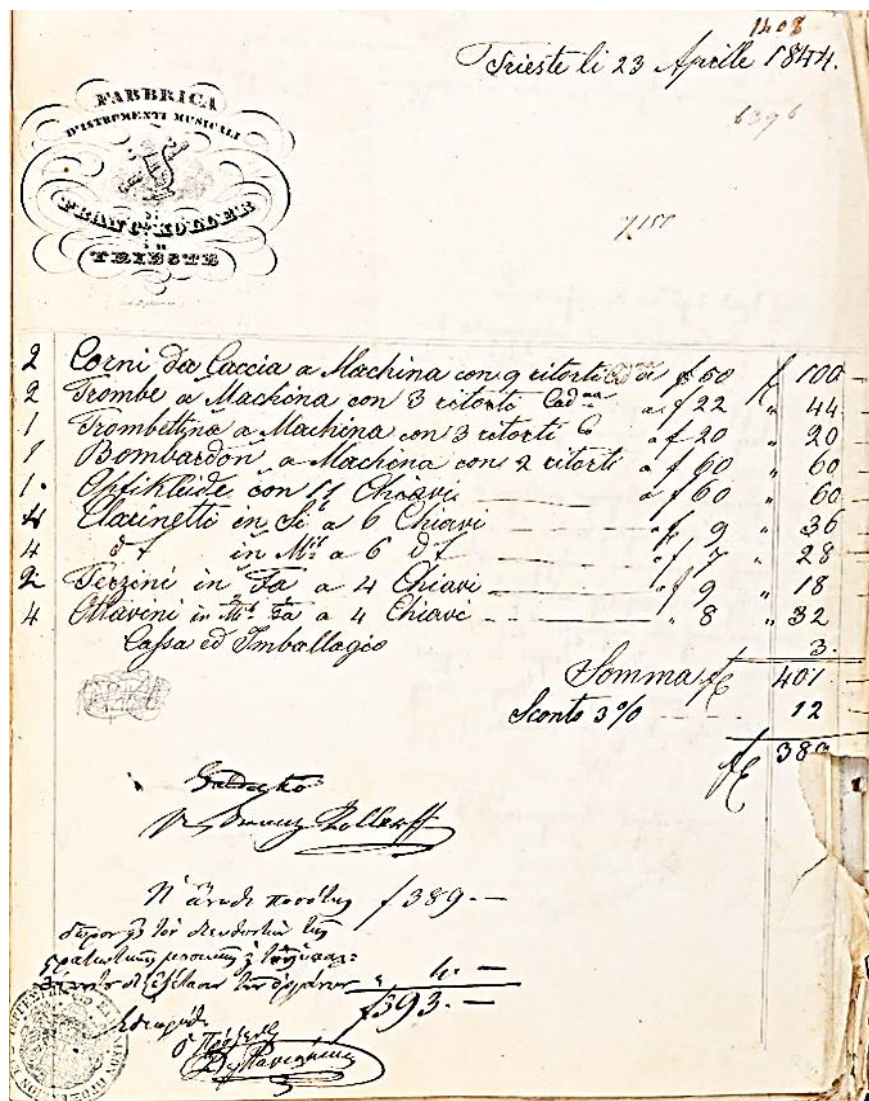 1408
Trieste li 23 Aprille 1844.
6396
FABBRICA
D'ISTROMENTI MUSICALI
DI
FRANC. KOLLER
IN
TRIESTE
2 Corni da Caccia a Machina con 9 ritorti a f 50 f 100 –
2 Trombe a Machina con 3 ritorti Cad.na a f 22 " 44 –
1 Trombettina a Machina con 3 ritorti a f 20 " 20 –
1 Bombardon a Machina con 2 ritorti a f 60 " 60 –
1. Offikleide con 11 Chiavi a f 60 " 60 –
4 Clarinetti in Si a 6 Chiavi " f 9 " 36
4 d.º in Mi a 6 d.º " f 7 " 28 –
2 Terzini in Fa a 4 Chiavi " f 9 " 18
4 Ottavini in Fa a 4 Chiavi " 8 " 32
Cassa ed Imballagio 3. –
Somma f 401 –
Sconto 3% 12
f 389
Saldato
Franz Koller
Ἡ ἄνωθι ποσότης f 389. –
τῆς
μουσικῆς
τῶν ὀργάνων " 4. –
f 393. –
Ἐθεωρήθη
ὁ Πρόξενος